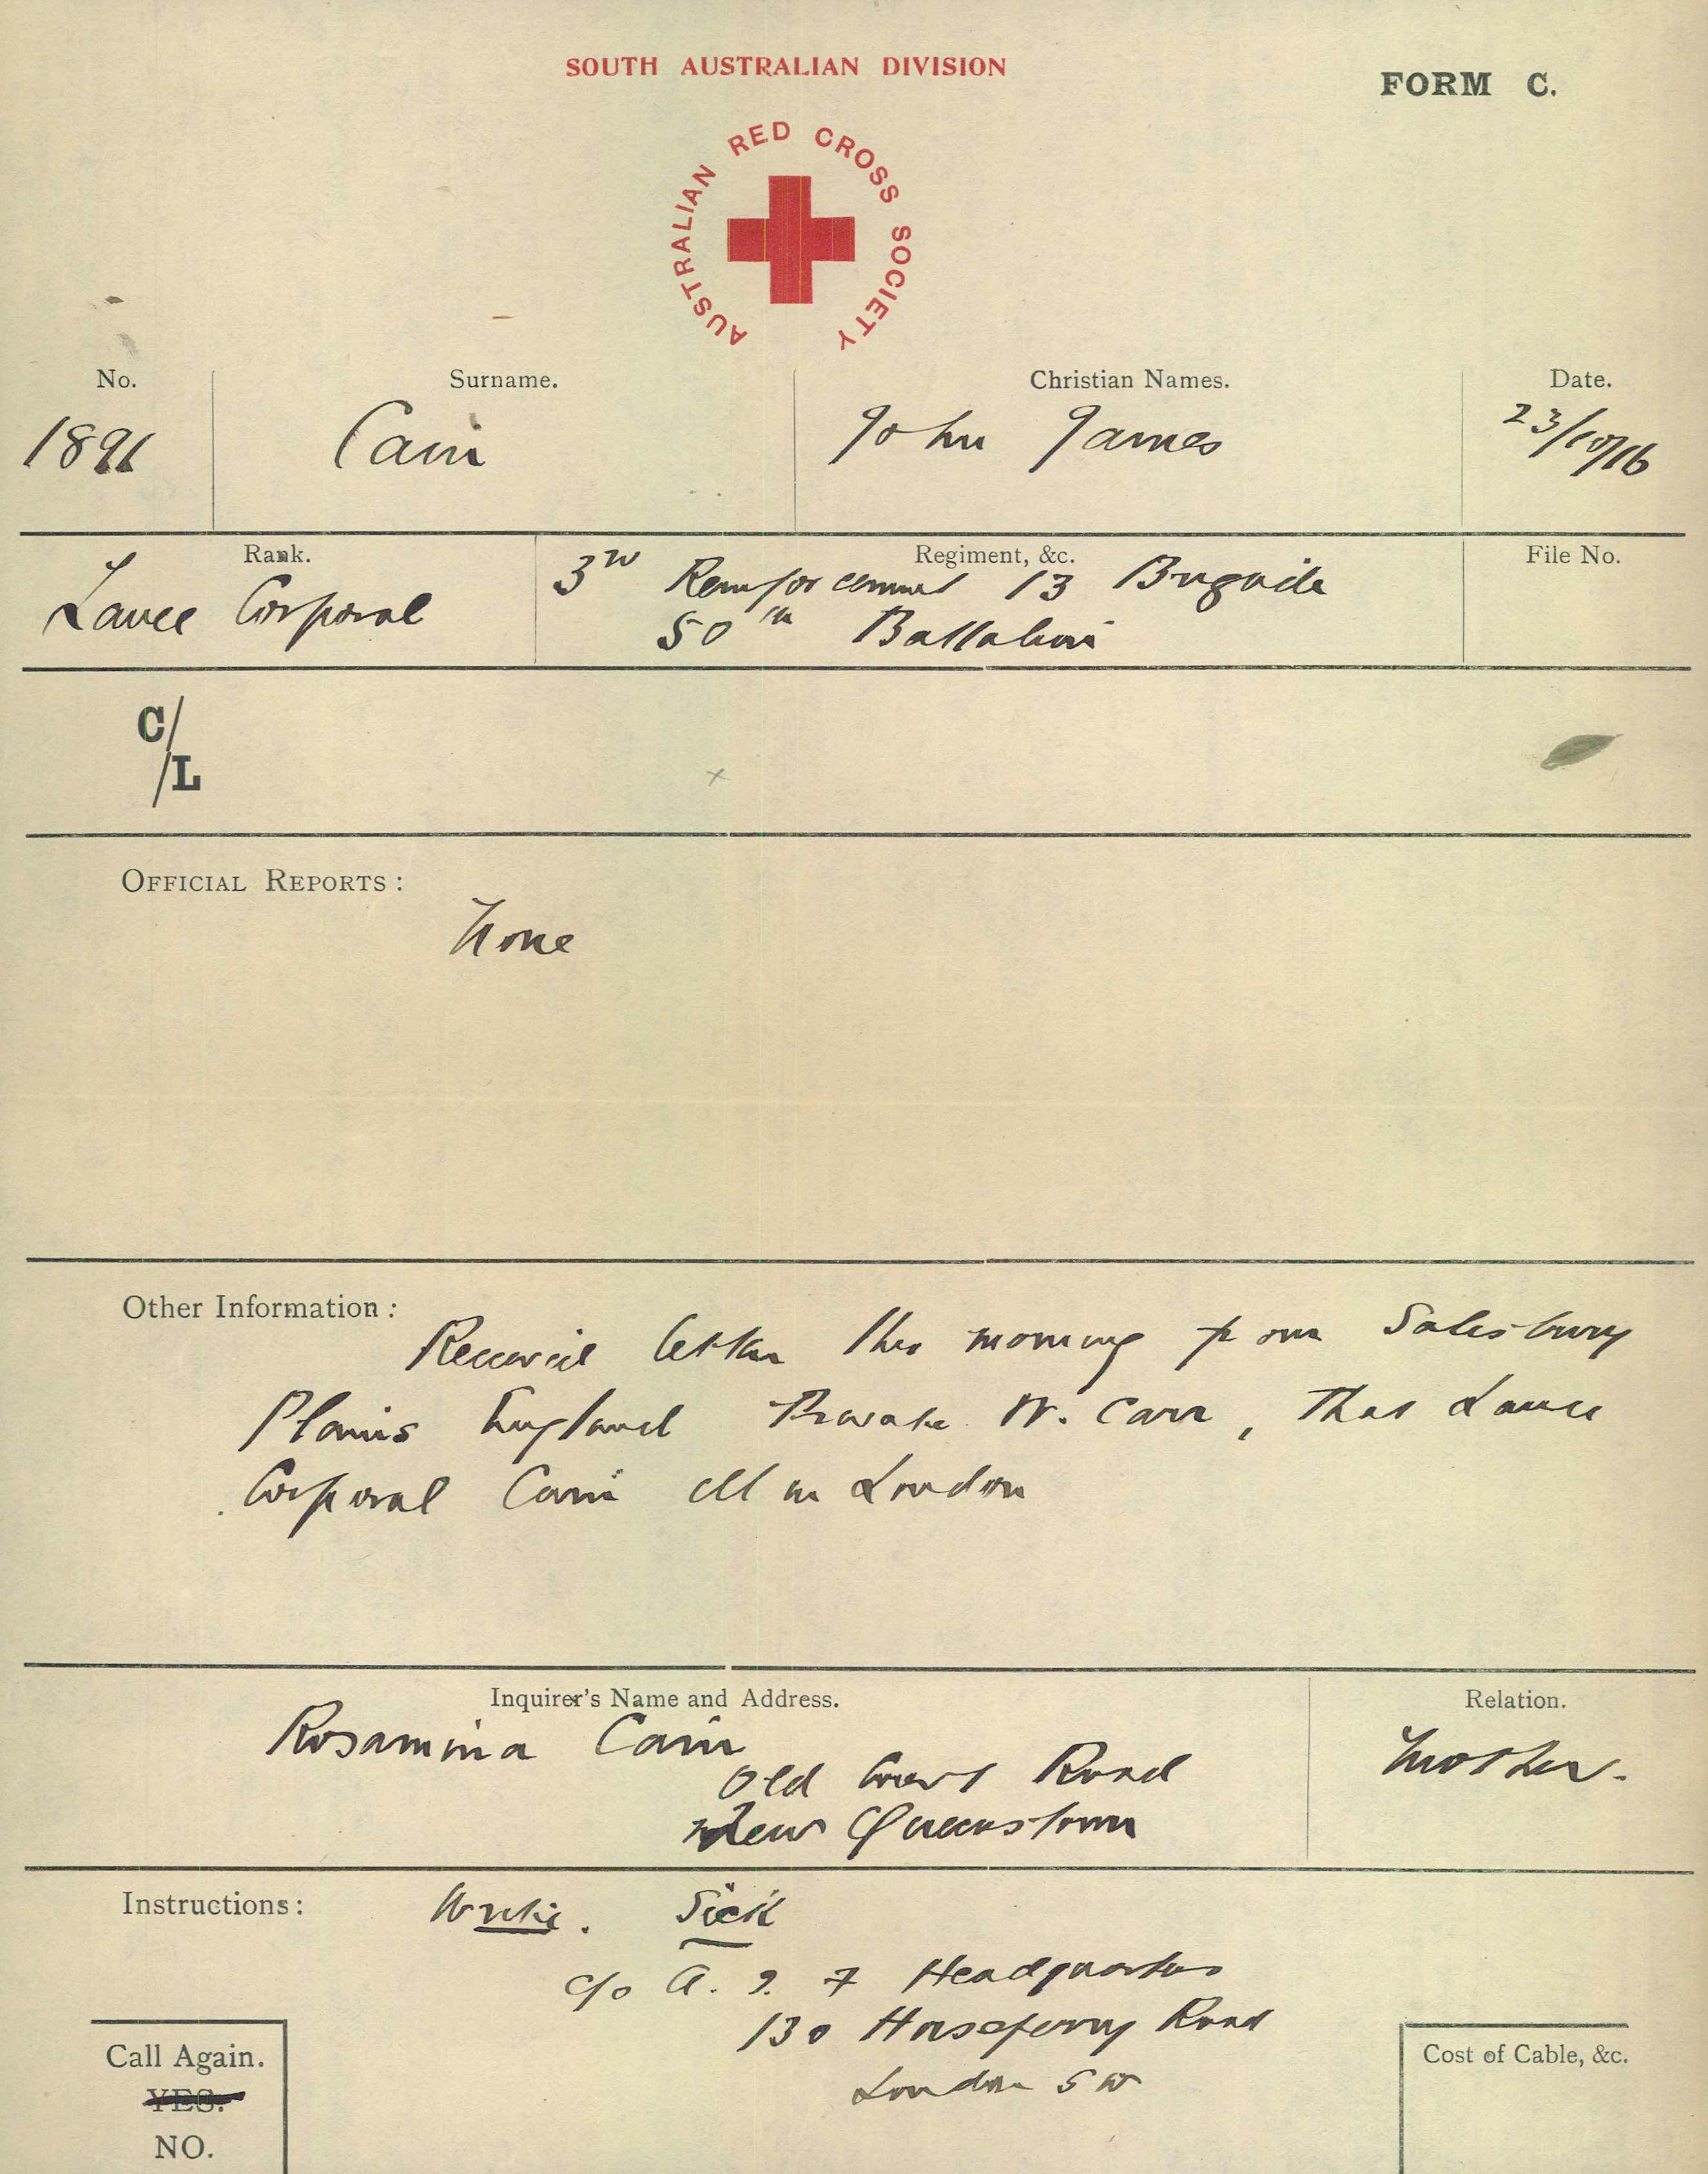 SOUTH AUSTRALIAN DIVISION
FORM C.
AUSTRALIAN RED CROSS SOCIETY
No. Surname. Christian Names. Date.
1891 Cain John James 23/10/16
Rank. Regiment, &c. File No.
Lance Corporal 3rd Reinforcement 13 Brigade
50th Battalion
C/
/L
x
OFFICIAL REPORTS:
None
Other Information:
Received letter this morning from Salisbury
Plains England Private W. Carr, that Lance
Corporal Cain ill in London
Inquirer's Name and Address. Relation.
Rosamina Cain Mother.
Old Road
New Queenstown
Instructions: Write. Sick
c/o A. I. F Headquarters
130 Horseferry Road
London SW
Call Again. Cost of Cable, &c.
YES.
NO.